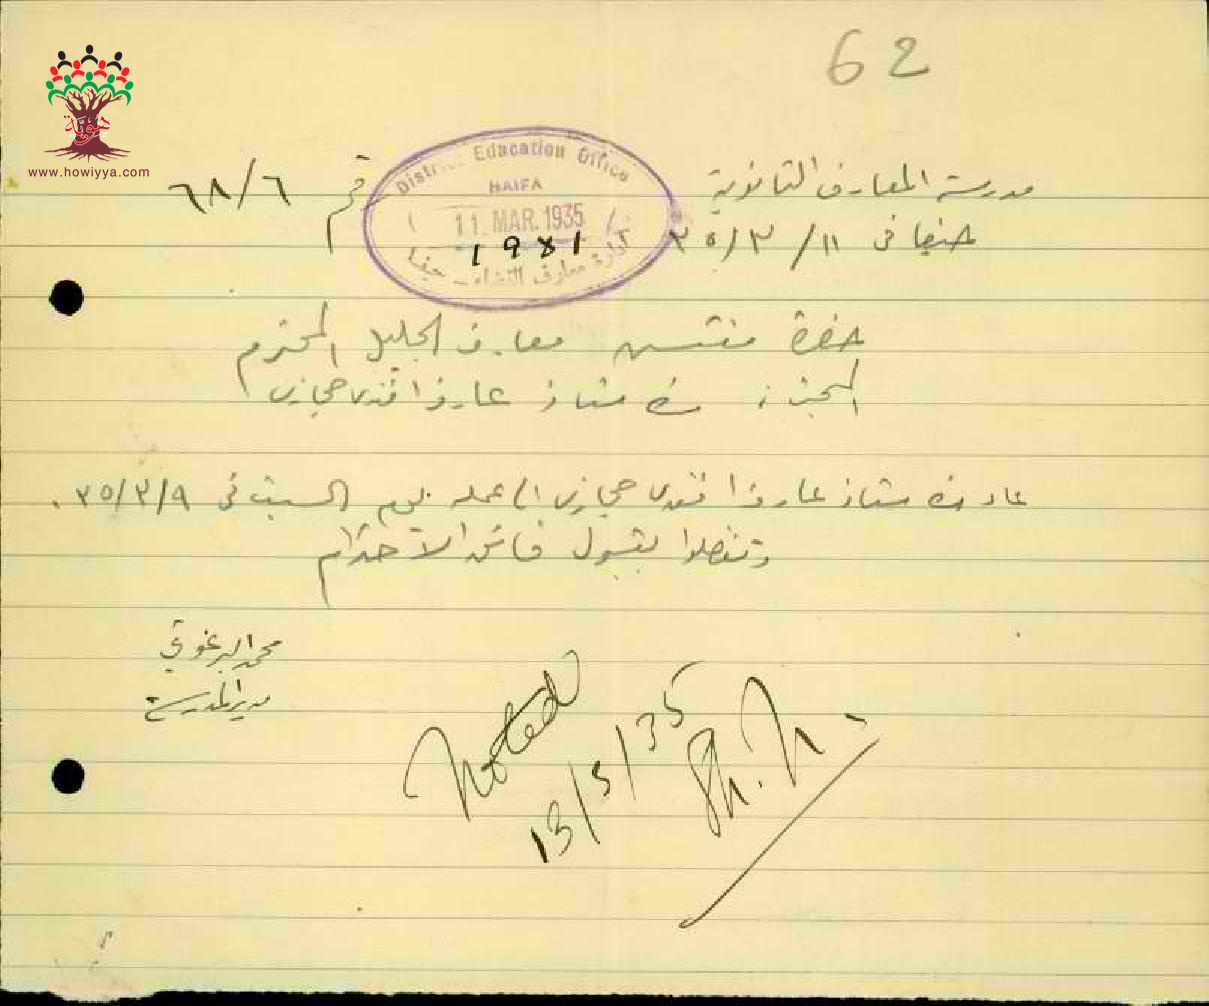 62
هوية
www.howiyya.com
مدرسة المعارف الثانوية
رقم ٦٨/٦
في ١١/٣/٣٥
District Education Office
HAIFA
11 MAR. 1935
1981
ادارة معارف القضاء - حيفا
حضرة مفتش معارف الجليل المحترم
عارف افندي حجازي
عاد عارف افندي حجازي الى عمله يوم السبت في ٣٥/٣/٩.
وتفضلوا بقبول فائق الاحترام
محمد البرغوثي
مدير المدرسة
Noted
13/3/35